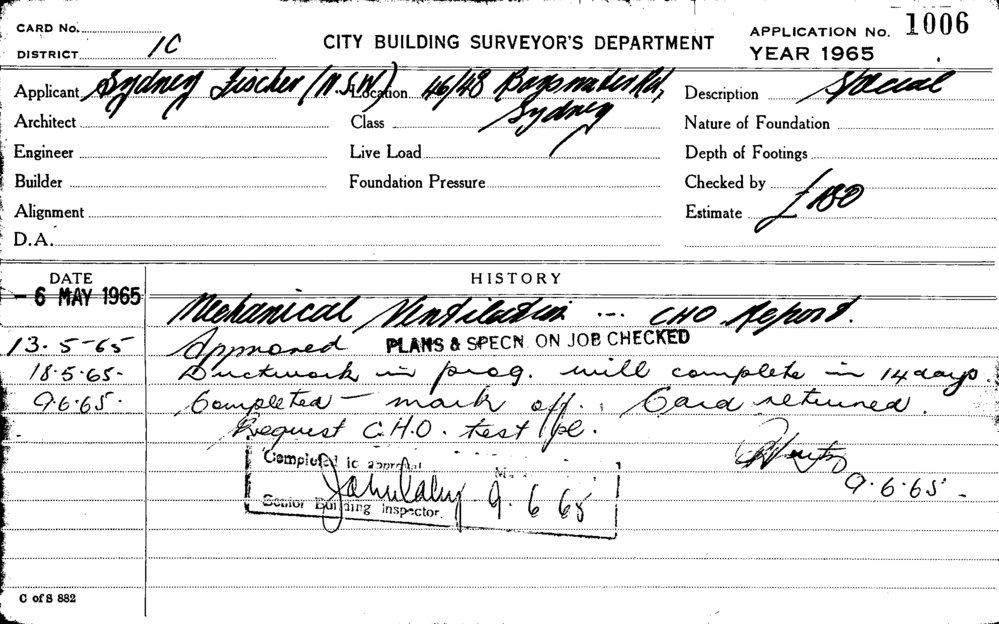 CARD No.
CITY BUILDING SURVEYOR'S DEPARTMENT
APPLICATION No. 1006
DISTRICT 1C
YEAR 1965
Applicant Sydney Fischer (N.S.W.) Location 46/48 Bayswater Rd,
Sydney
Description Special
Architect
Class
Nature of Foundation
Engineer
Live Load
Depth of Footings
Builder
Foundation Pressure
Checked by
Alignment
Estimate £180
D.A.
DATE
HISTORY
- 6 MAY 1965
Mechanical Ventilation ... CHO Report.
13.5-65 Approved PLANS & SPECN. ON JOB CHECKED
18.5.65. Ductwork in prog. will complete in 14 days.
9.6.65. Completed - mark off. Card returned.
Request C.H.O. test pl.
Completed to approval
9.6.65 -
9.6.65
Senior Building Inspector.
C of S 882